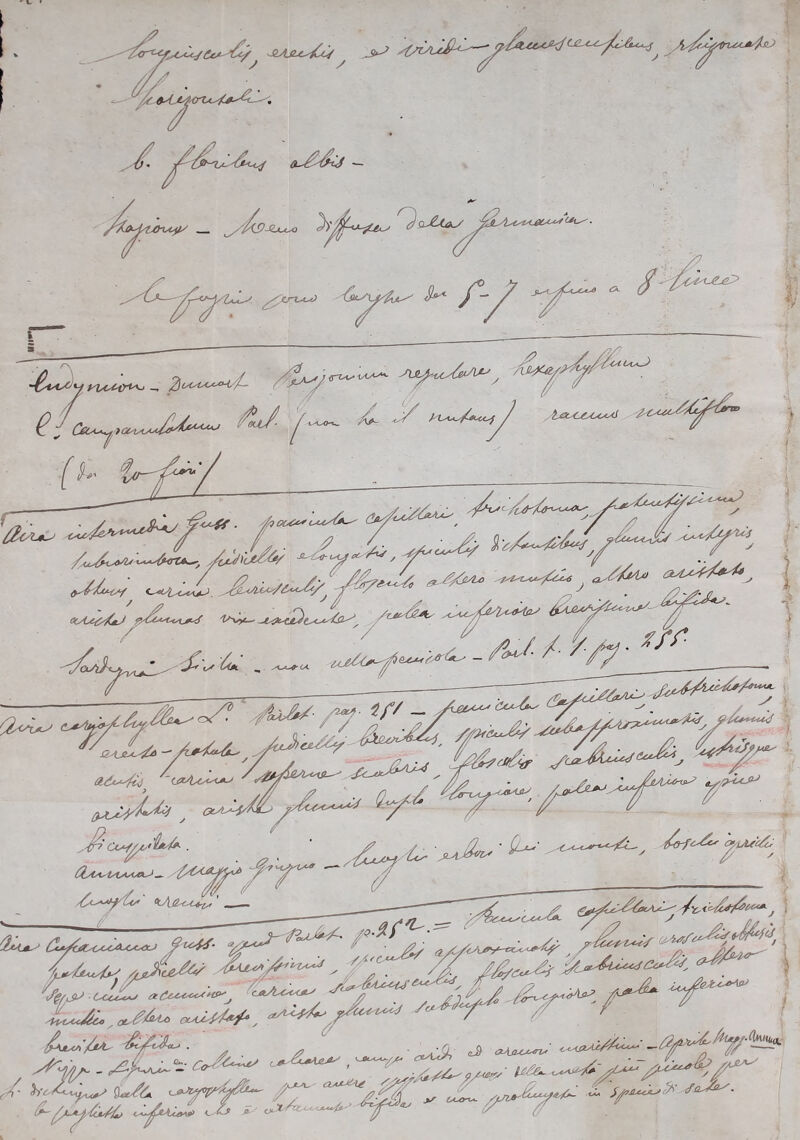 longiusculis, erectis, e viridi-glaucescentibus, rhizomate
horizontali.
b. floribus albis –
Stagioni – Meno diffusa della Germanica.
le foglie sono larghe da 5-7 a 8 linee
Endymion – Dumort Perigonium regulare, hexaphyllum
E. campanulatum Parl. (non ha il nutans) racemo multifloro
(da 20 fiori)
Aira intermedia Guss. panicula capillari, trichotoma, patentissima,
subcorimbosa, pedicellis elongatis, spiculis distantibus, glumis integris,
obtusis, carina leviusculis, flosculo altero mutico, altero aristato,
arista glumas vix excedente, palea inferiore brevissime bifida.
Sardegna Sicilia – non nella penisola – Parl. t. 1. pag. 255.
Aira caryophyllea L. Parlat. pag. 251 – panicula capillari, subtrichotoma,
erecto-patula, pedicellis brevibus, spiculis subapproximatis, glumis
acutis, carina superne scabris, flosculis scabriusculis, utrisque
aristatis, arista glumis duplo longiore, palea inferiore apice
bicuspidata.
annua – Maggio Giugno – luoghi erbosi dei monti, boschi aprichi,
luoghi arenosi –
Aira Cupaniana Guss. apud Parlat. p. 252. = Panicula capillari, trichotoma,
patente, pedicellis brevissimis, spiculis approximatis, glumis erosulis obtusis,
sepe cum acumine, carina scabriusculis, flosculis scabriusculis, altero
mutico, altero aristato, arista glumis subduplo longiore, palea inferiore
breviter bifida.
Nizza – Liguria colline calcaree, campi aridi ed arenosi marittimi – Aprile Magg. Annua
si distingue dalla caryophyllea per avere spighette quasi della metà più piccole, per
la paglietta inferiore che è cortamente bifida e non prolungata in specie di sete.